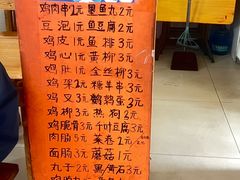 鸡肉串1元 墨鱼丸2元
豆泡1元 鱼豆腐2元
鸡皮1元 鱼排3元
鸡心1元 黄柳3元
鸡肚1元 金丝柳3元
鸡架2元 糖羊串3元
鸡叉3元 鹌鹑蛋3元
鸡柳3元 热狗2元
鸡脆骨3元 千叶豆腐3元
肉肠5元 菜卷2元
面肠3元 蘑菇1元
丸子2元 黑黄石3元